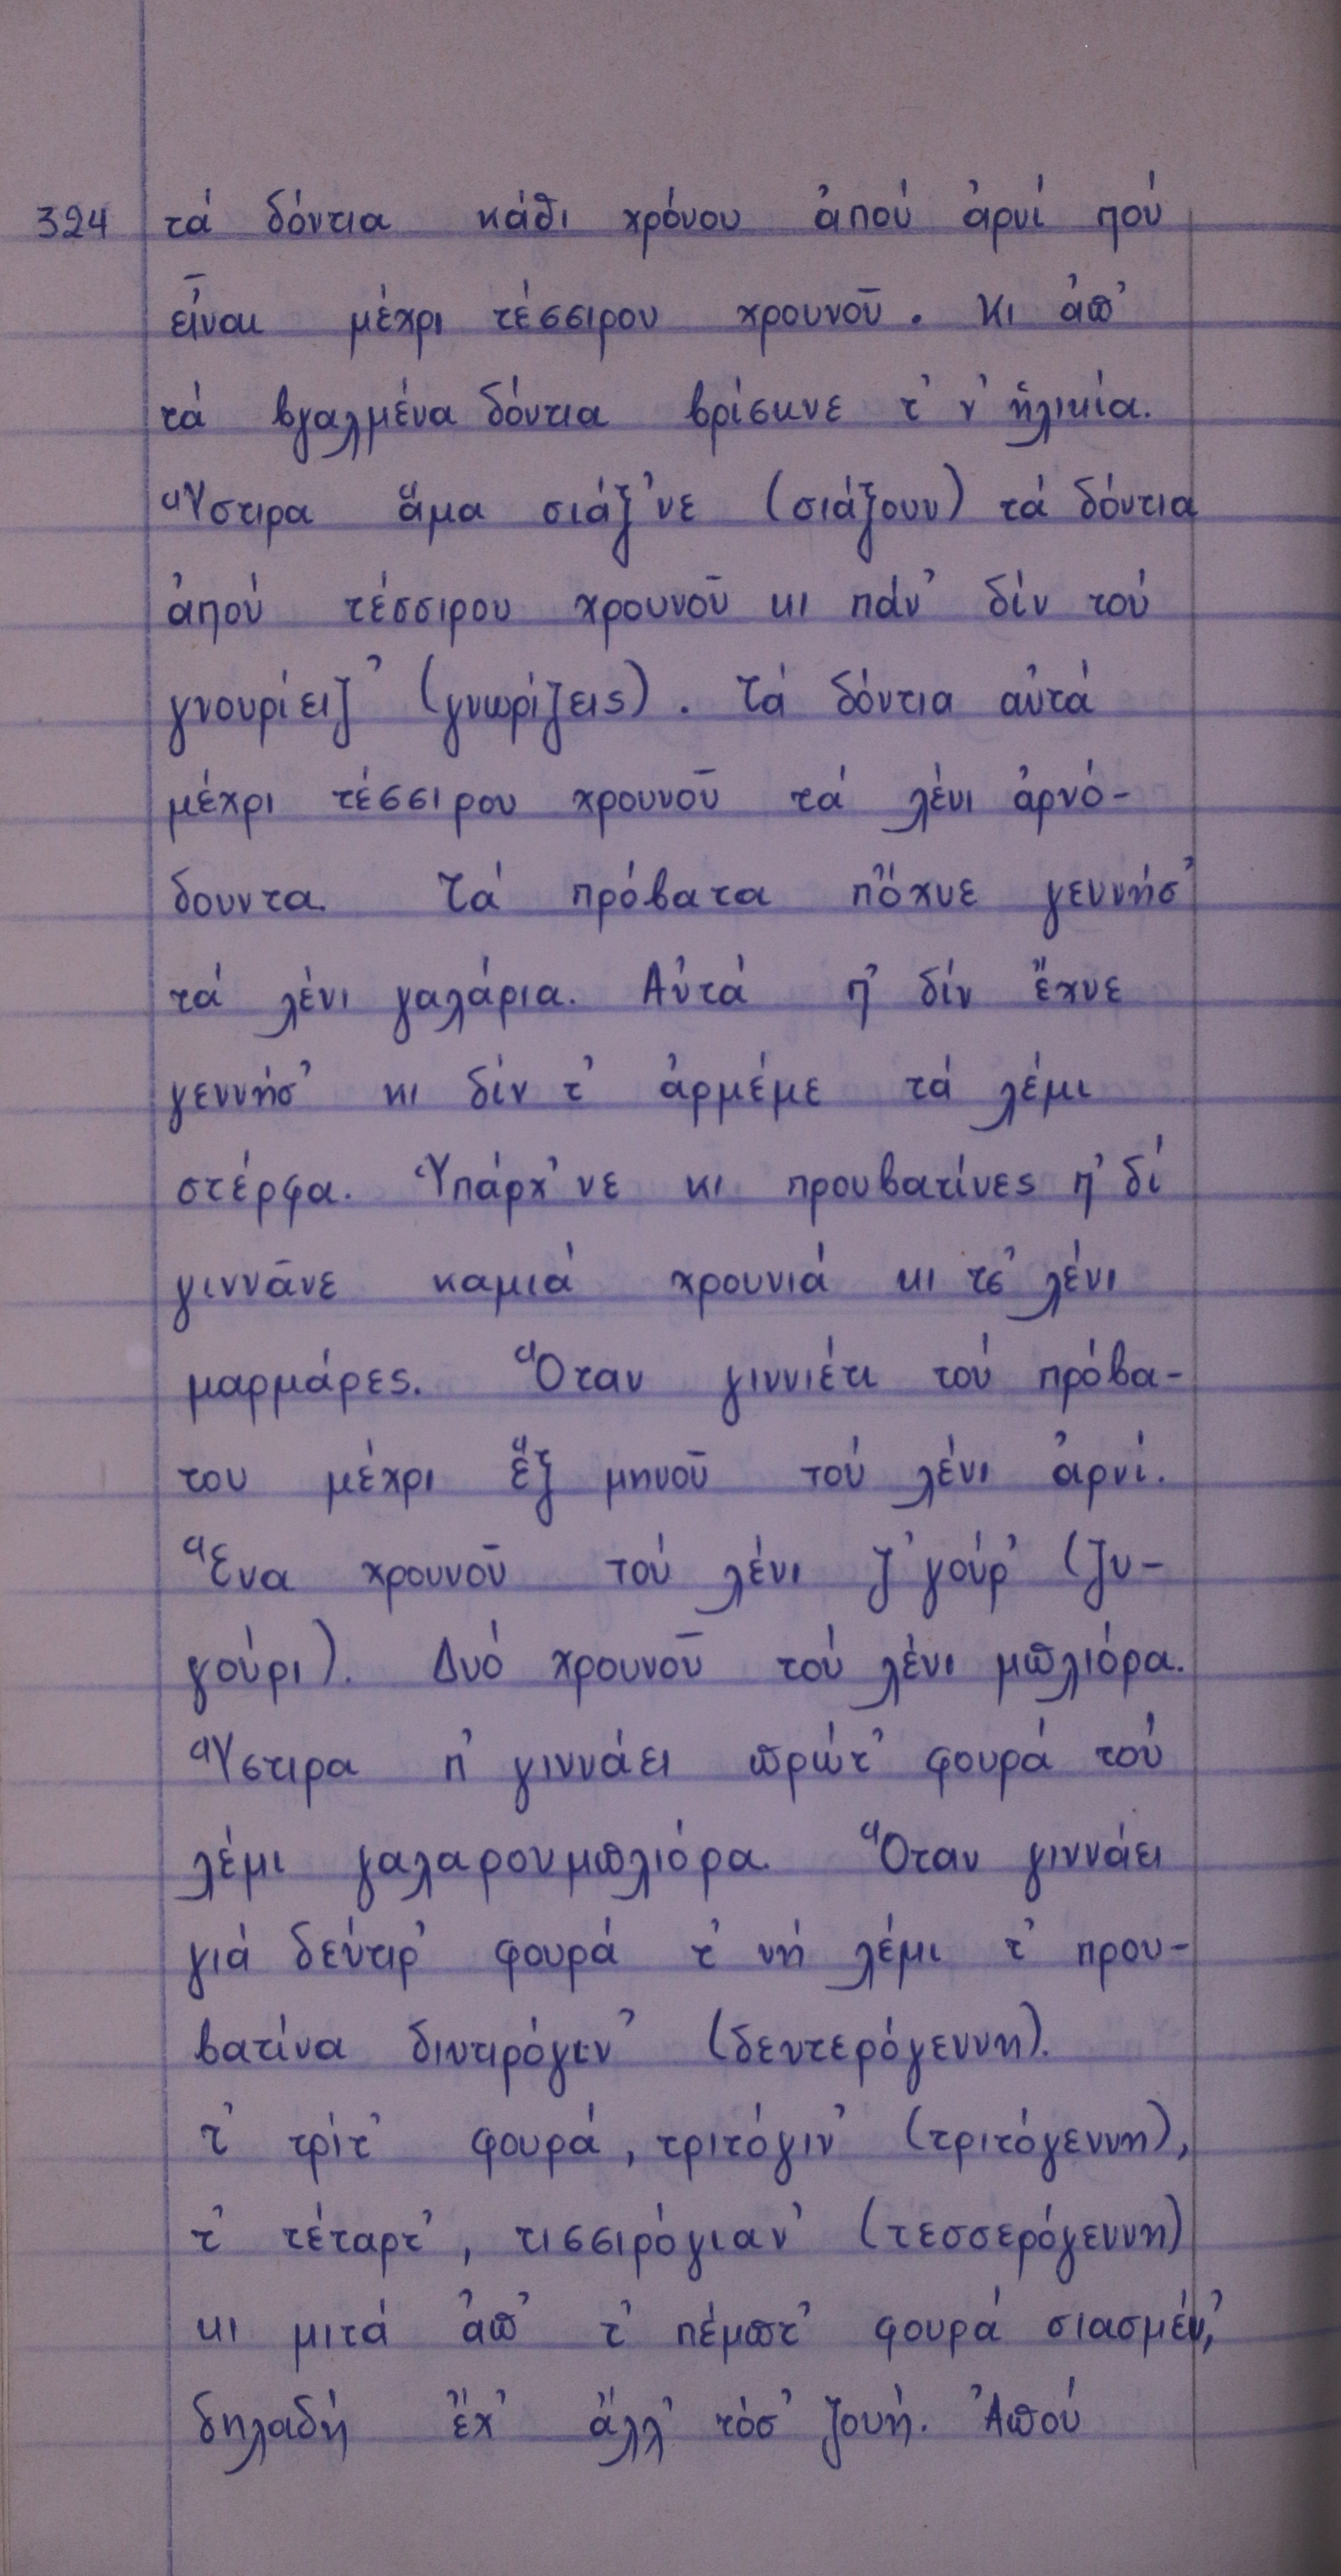 324 τά δόντια κάθι χρόνου ἀπού ἀρνί πού
εἶναι μέχρι τέσσιρου χρουνοῦ. Κι ἀπ'
τά βγαλμένα δόντια βρίσκνε τ' ν' ἡλικία.
Ὕστιρα ἅμα σιάζ'νε (σιάζουν) τά δόντια
ἀπού τέσσιρου χρουνοῦ κι πάν' δίν τού
γνουρίειζ' (γνωρίζεις). Τά δόντια αὐτά
μέχρι τέσσιρου χρουνοῦ τά λένι ἀρνό-
δουντα. Τά πρόβατα πὄχνε γεννήσ'
τά λένι γαλάρια. Αὐτά π' δίν ἔχνε
γεννήσ' κι δίν τ' ἀρμέμε τά λέμι
στέρφα. Ὑπάρχ'νε κι προυβατίνες π' δί
γιννᾶνε καμιά χρουνιά κι τσ' λένι
μαρμάρες. Ὅταν γιννιέτι τού πρόβα-
του μέχρι ἕξ μηνοῦ τού λένι ἀρνί.
Ἕνα χρουνοῦ τού λένι ζ'γούρ' (ζυ-
γούρι). Δυό χρουνοῦ τού λένι μπλιόρα.
Ὕστιρα π' γιννάει πρώτ' φουρά τού
λέμι γαλαρουμπλιόρα. Ὅταν γιννάει
γιά δεύτιρ' φουρά τ' νή λέμι τ' πρου-
βατίνα διυτιρόγιν' (δευτερόγεννη).
τ' τρίτ' φουρά, τριτόγιν' (τριτόγεννη),
τ' τέταρτ', τισσιρόγιαν' (τεσσερόγεννη)
κι μιτά ἀπ' τ' πέμπτ' φουρά σιασμέν',
δηλαδή ἔχ' ἄλλ' τόσ' ζουή. Ἀπού